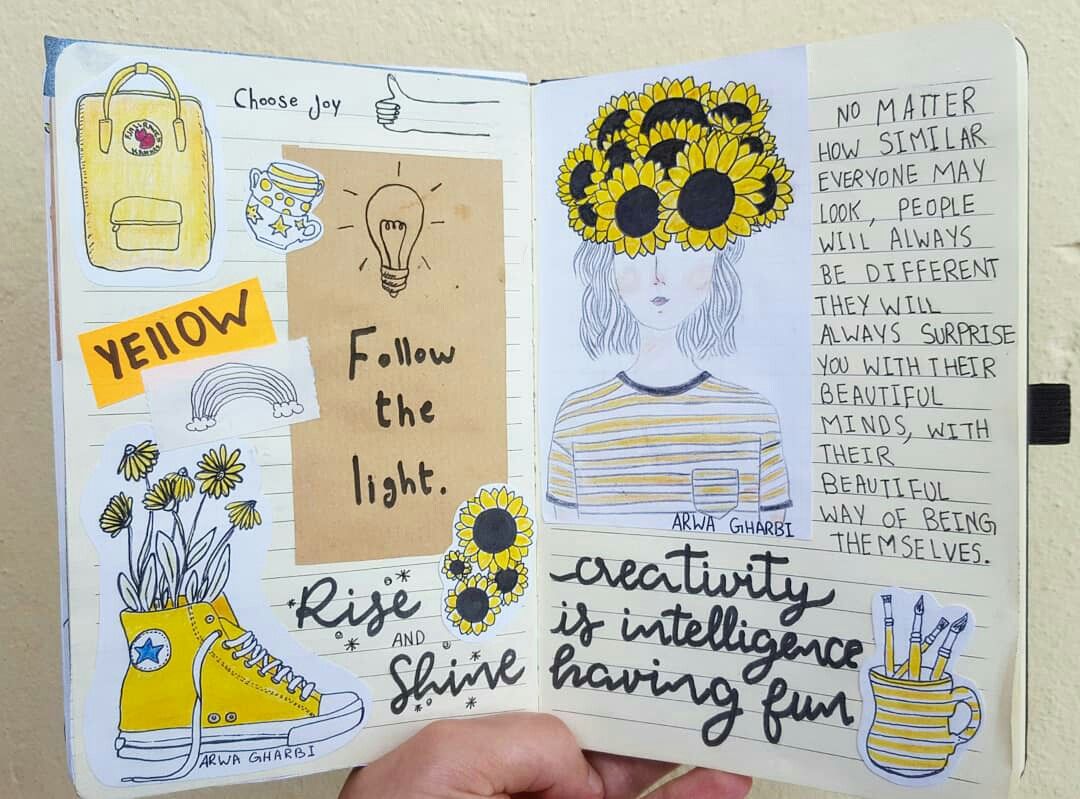 Choose Joy
YEllOW
Follow
the
light.
Rise
AND
Shine
ARWA GHARBI
NO MATTER
HOW SIMILAR
EVERYONE MAY
LOOK, PEOPLE
WILL ALWAYS
BE DIFFERENT
THEY WILL
ALWAYS SURPRISE
YOU WITH THEIR
BEAUTIFUL
MINDS, WITH
THEIR
BEAUTIFUL
WAY OF BEING
THEMSELVES.
ARWA GHARBI
creativity
is intelligence
having fun